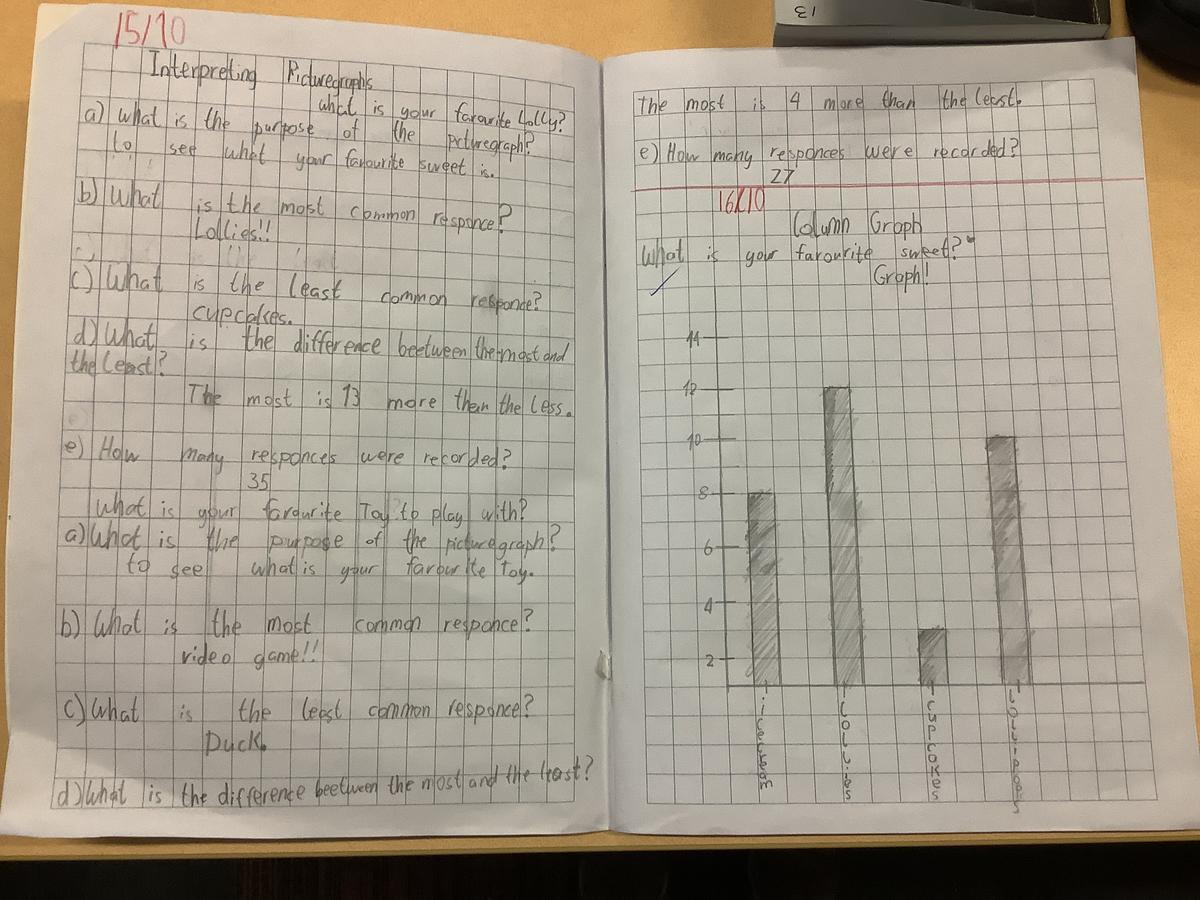 15/10
Interpreting Picturegraphs
what is your favourite Lolly?
a) What is the purpose of the picturegraph?
to see what your favourite sweet is.
b) What is the most common responce?
Lollies!!
c) What is the least common responce?
cupcakes.
d) What is the difference beetween the most and
the least?
The most is 13 more than the less.
e) How many responces were recorded?
35
What is your favourite Toy to play with?
a) What is the purpose of the picturegraph?
to see what is your favourite Toy.
b) What is the most common responce?
video game!!
c) What is the least common responce?
Duck.
d) What is the difference beetween the most and the least?
13
The most is 4 more than the least.
e) How many responces were recorded?
27
16/10
Column Graph
What is your favourite sweet?
Graph!
14
12
10
8
6
4
2
icecream
Lollies
cupcakes